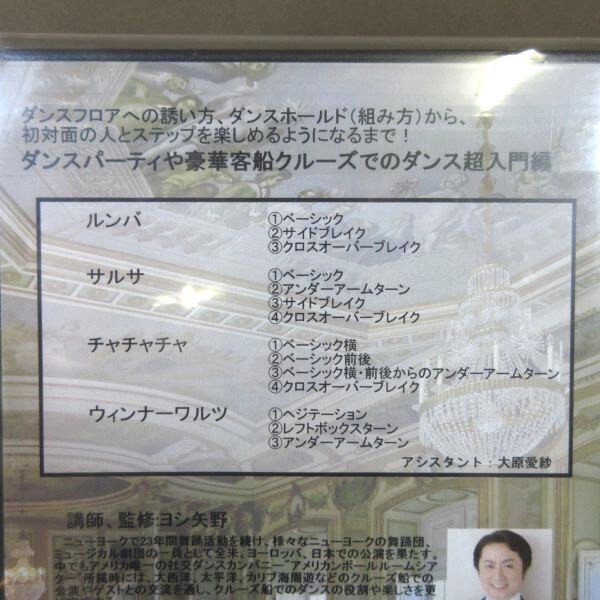 ダンスフロアへの誘い方、ダンスホールド(組み方)から、
初対面の人とステップを楽しめるようになるまで!
ダンスパーティや豪華客船クルーズでのダンス超入門編
ルンバ
①ベーシック
②サイドブレイク
③クロスオーバーブレイク
サルサ
①ベーシック
②アンダーアームターン
③サイドブレイク
④クロスオーバーブレイク
チャチャチャ
①ベーシック横
②ベーシック前後
③ベーシック横・前後からのアンダーアームターン
④クロスオーバーブレイク
ウィンナーワルツ
①ヘジテーション
②レフトボックスターン
③アンダーアームターン
アシスタント:大原愛紗
講師、監修:ヨシ矢野
ニューヨークで23年間舞踊活動を続け、様々なニューヨークの舞踊団、
ミュージカル劇団の一員として全米、ヨーロッパ、日本での公演を果たす。
中でもアメリカ唯一の社交ダンスカンパニー"アメリカンボールルームシア
ター"所属時には、大西洋、太平洋、カリブ海周遊などのクルーズ船での
公演やゲストとの交流を通し、クルーズ船でのダンスの役割や楽しさを更